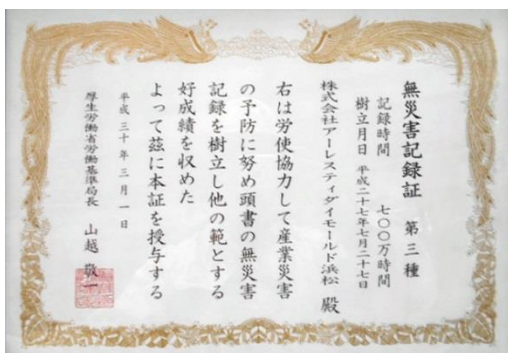 無災害記録証 第三種
記録時間 七〇〇万時間
樹立月日 平成二十七年七月二十七日
株式会社アーレスティダイモールド浜松 殿
右は労使協力して産業災害
の予防に努め頭書の無災害
記録を樹立し他の範とする
好成績を収めた
よって茲に本証を授与する
平成三十年三月一日
厚生労働省労働基準局長 山越 敬一